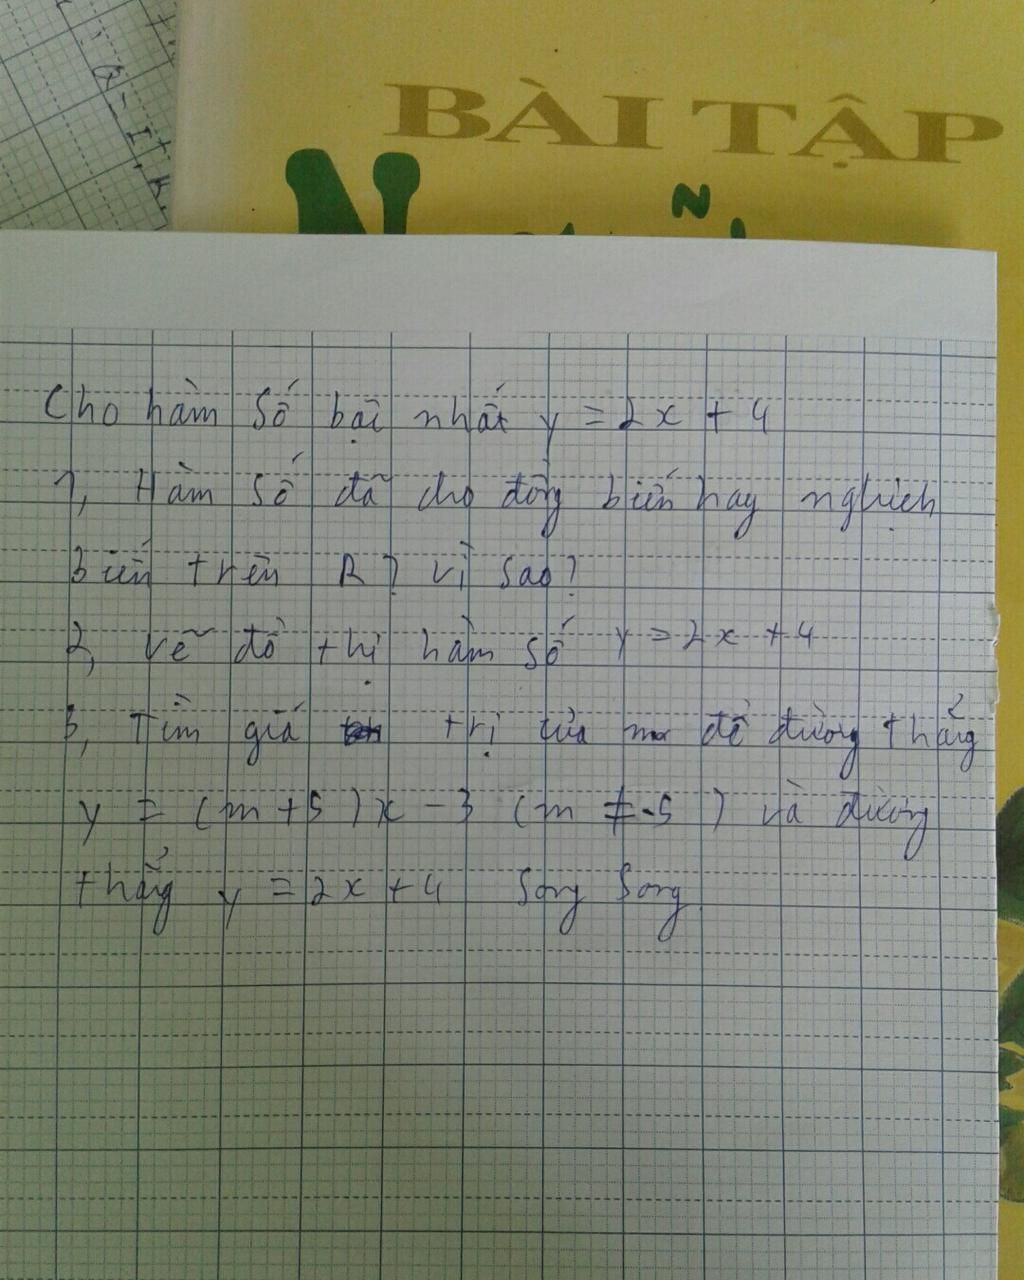 BÀI TẬP
Cho hàm số bậc nhất y = 2x + 4
1, Hàm số đã cho đồng biến hay nghịch
biến trên R? vì sao?
2, vẽ đồ thị hàm số y = 2x + 4
3, Tìm giá trị của m để đường thẳng
y = (m + 5)x - 3 (m ≠ -5) và đường
thẳng y = 2x + 4 song song.